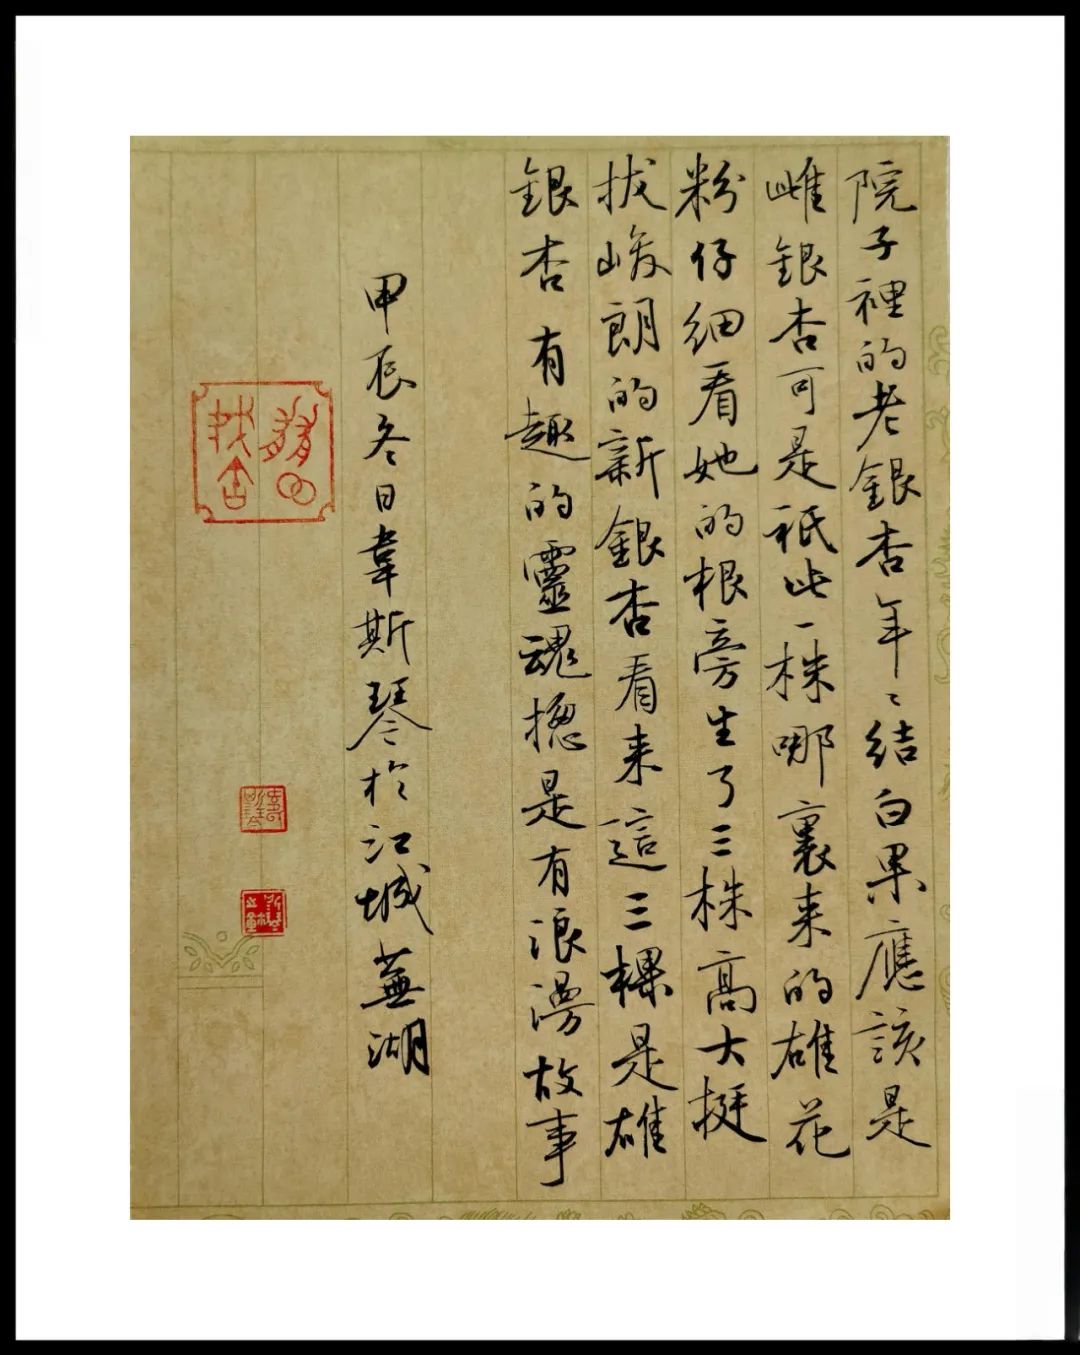 院子裡的老銀杏年〻結白果應該是
雌銀杏可是祇此一株哪裏来的雄花
粉仔细看她的根旁生了三株高大挺
拔峻朗的新銀杏看来這三棵是雄
銀杏有趣的靈魂摠是有浪漫故事
甲辰冬日韋斯琴於江城蕪湖